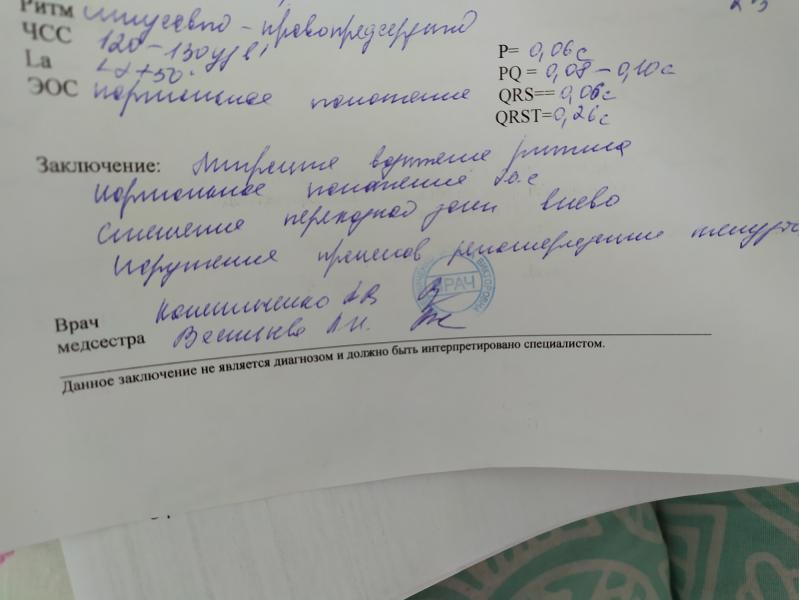 Ритм синусово-правопредсердно
ЧСС 120-130 уд в 1
La Ld +50°
ЭОС нормальное положение
P= 0,06с
PQ = 0,08-0,10с
QRS== 0,06с
QRST=0,26с
Заключение: Миграция водителя ритма
Нормальное положение э.о.с
Смещение переходной зоны влево
Нарушение процессов реполяризации
Врач
медсестра Васильева
ВРАЧ
Данное заключение не является диагнозом и должно быть интерпретировано специалистом.